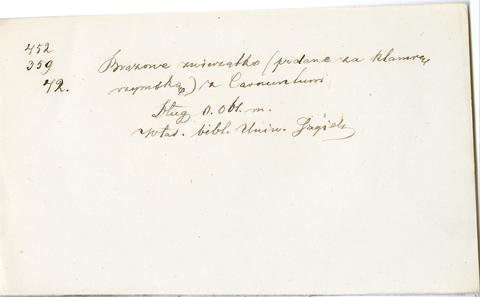 452
359
42.
Brązowe zwierzątko (podane za klamrę
rzymską) z Carnuntum
Dług. 0.061. m.
Włas. bibl. Uniw. Jagiell.